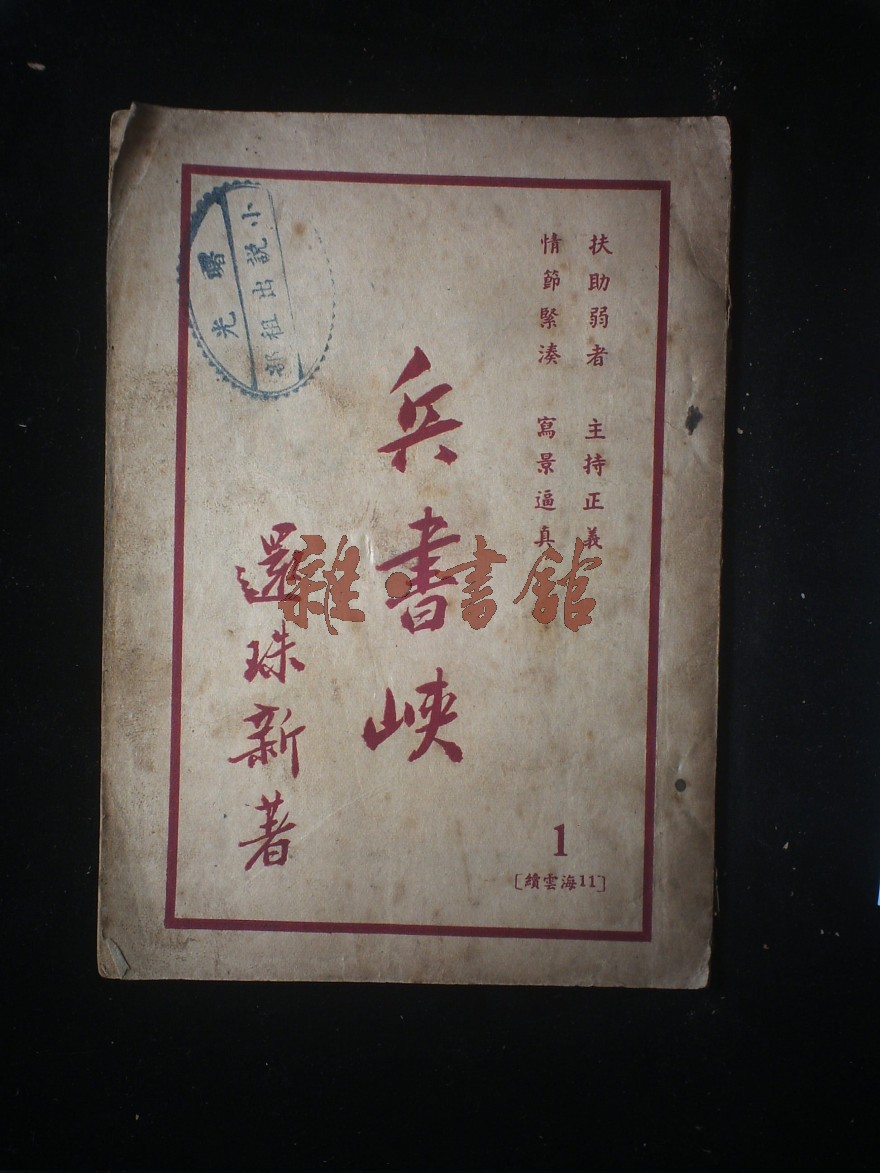 扶助弱者 主持正義
情節緊湊 寫景逼真
兵書峽
還珠新著
1
[績雲海11]
小説出租部
曙光
雜·書館